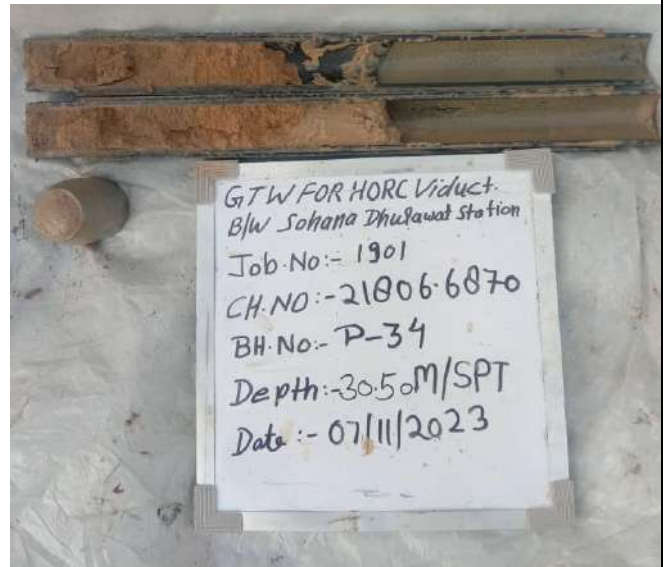 GTW FOR HORC Viduct.
B/W Sohana Dhulawat Station
Job.No:- 1901
CH.NO:-21806.6870
BH.No:- P-34
Depth:-30.50M/SPT
Date:- 07/11/2023